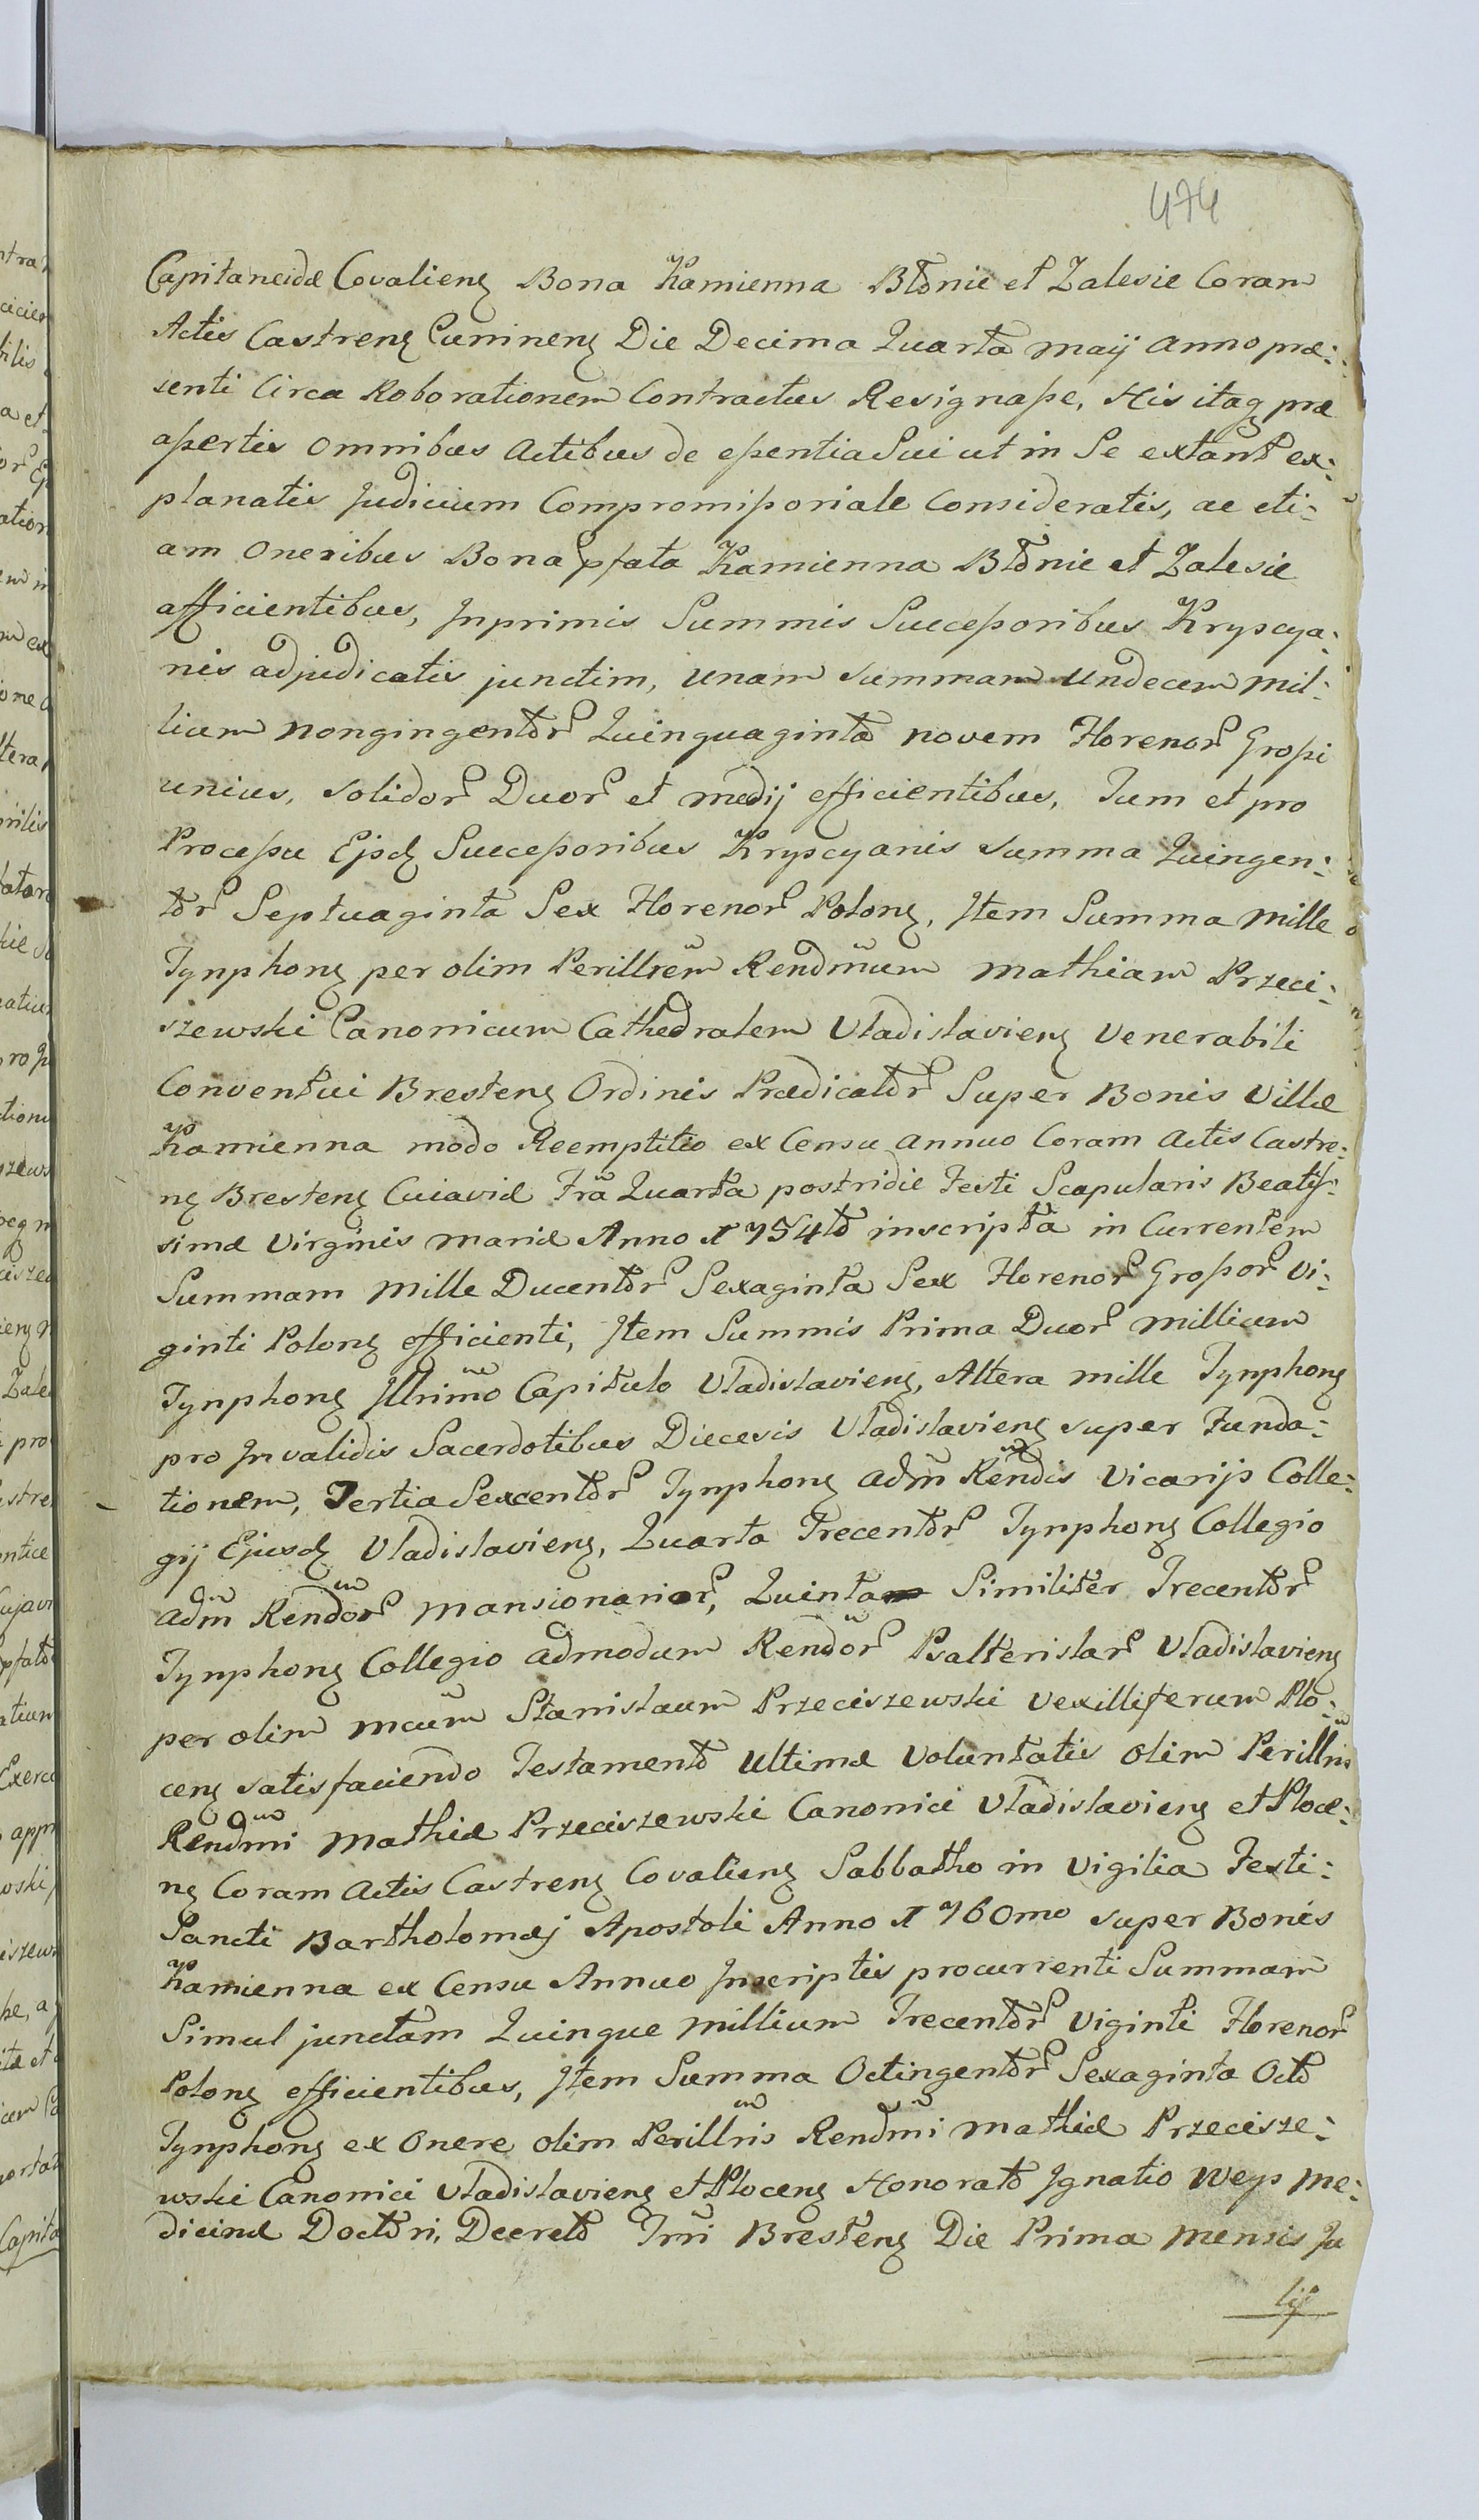 474
Capitaneidæ Covalienẛ Bona Kamienna Błonie et Zalesie Coram
Actis Castrenẛ Cunninenẛ Die Decima Quarta Maÿ Anno præ:
senti Circa Roborationem Contractus Resignasse, His itaqꝫ præ
apertis Omnibus Actibus de essentia Sui ut in Se extant ex:
planatis Judicium Compromissoriale Consideratis, ac eti:
am Oneribus Bona pfata Kamienna Błonie et Zalesie
afficientibus, Inprimis Summis Successoribus Krypscya:
nis adjudicatis junctim, unam summam Undecem Mil:
lium Nongingentor Quinquaginta novem Florenor Grossi
unius, solidor Duor et medij efficientibus, Tum et pro
Processu Ejsd Successoribus Krypscyanis summa Quingen:
tor Septuaginta Sex Florenor Polonẛ, Item Summa Mille
Tynphonẛ per olim Perillrem Rendmum Mathiam Przeci:
szewski Canonicum Cathedralem Vladislavienẛ Venerabili
Conventui Brestenẛ Ordinis Prædicator Super Bonis Villæ
Kamienna modo Reemptitio ex Censu annuo Coram Actis Castre:
nẛ Brestenẛ Cuiaviæ Fra Quarta postridie Festi Scapularis Beatis:
simæ Virginis Mariæ Anno 1754to inscripta in Currentem
Summam Mille Ducentor Sexaginta Sex Florenor Grossor Vi:
ginti Polonẛ efficienti, Item Summis Prima Duor Millium
Tynphonẛ Illrimo Capitulo Vladislavienẛ, Altera mille Tynphonẛ
pro Invalidis Sacerdotibus Diecesis Vladislavienẛ super Funda:
tionem, Tertia Sexcentor Tynphonẛ adm Rendis Vicarijs Colle:
gij Ejusd Vladislavienẛ, Quarta Trecentor Tynphonẛ Collegio
adm Rendor Mansionarior, Quinta Similiter Trecentor
Tynphonẛ Collegio admodum Rendor Psalteristar Vladislavienẛ
per olim Mcum Stanislaum Przeciszewski Vexilliferum Plo:
cenẛ satisfaciendo Testamento Ultimæ Voluntatis olim Perillris
Rendmi Mathiæ Przeciszewski Canonici Vladislavienẛ et Ploce:
nẛ Coram Actis Castrenẛ Covalienẛ Sabbatho in Vigilia Festi:
Sancti Bartholomæj Apostoli Anno 1760mo super Bonis
Kamienna ex Censu Annuo Inscriptis procurrenti Summam
Simul junctam Quinque Millium Trecentor Viginti Florenor
Polonẛ efficientibus, Item Summa Octingentor Sexaginta Octo
Tynphonẛ ex Onere olim Perillris Rendmi Mathiæ Przecisze:
wski Canonici Vladislavienẛ et Plocenẛ Honorato Ignatio Weys Me:
dicinæ Doctori, Decreto Trri Brestenẛ Die Prima Mensis Ju
lij